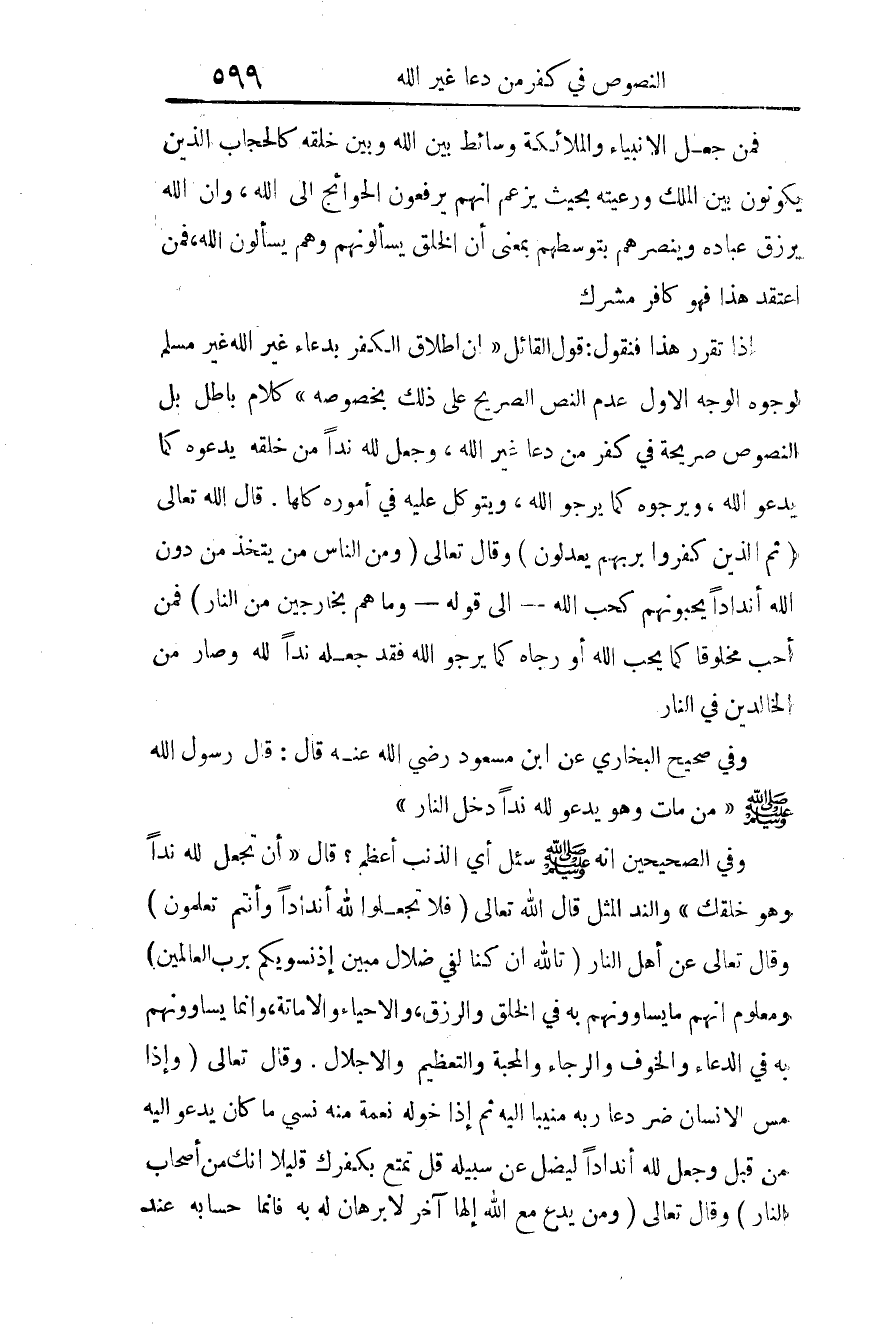 النصوص في كفر من دعا غير الله ٥٩٩
فمن جعل الانبياء والملائكة وسائط بين الله وبين خلقه كالحجاب الذين
يكونون بين الملك ورعيته بحيث يزعم انهم يرفعون الحوائج الى الله، وان الله
يرزق عباده وينصرهم بتوسطهم بمعنى أن الخلق يسألونهم وهم يسألون الله، فمن
اعتقد هذا فهو كافر مشرك
إذا تقرر هذا فنقول: قول القائل « ان اطلاق الكفر بدعاء غير الله غير مسلم
لوجوه الوجه الاول عدم النص الصريح على ذلك بخصوصه » كلام باطل بل
النصوص صريحة في كفر من دعا غير الله ، وجعل لله نداً من خلقه يدعوه كما
يدعو الله ، ويرجوه كما يرجو الله ، ويتوكل عليه في أموره كلها . قال الله تعالى
( ثم الذين كفروا بربهم يعدلون ) وقال تعالى ( ومن الناس من يتخذ من دون
الله أنداداً يحبونهم كحب الله -- الى قوله — وما هم بخارجين من النار ) فمن
أحب مخلوقا كما يحب الله أو رجاه كما يرجو الله فقد جعله نداً لله وصار من
الخالدين في النار
وفي صحيح البخاري عن ابن مسعود رضي الله عنه قال : قال رسول الله
ﷺ « من مات وهو يدعو لله نداً دخل النار »
وفي الصحيحين انه ﷺ سئل أي الذنب أعظم ؟ قال « أن تجعل لله نداً
وهو خلقك » والند المثل قال الله تعالى ( فلا تجعلوا لله أنداداً وأنتم تعلمون )
وقال تعالى عن أهل النار ( تالله ان كنا لفي ضلال مبين إذ نسويكم برب العالمين)
ومعلوم انهم ما يساوونهم به في الخلق والرزق، والاحياء والاماتة، وانما يساوونهم
به في الدعاء والخوف والرجاء والمحبة والتعظيم والاجلال . وقال تعالى ( وإذا
مس الانسان ضر دعا ربه منيبا اليه ثم إذا خوله نعمة منه نسي ما كان يدعو اليه
من قبل وجعل لله أنداداً ليضل عن سبيله قل تمتع بكفرك قليلا انك من أصحاب
النار ) وقال تعالى ( ومن يدع مع الله إلها آخر لا برهان له به فانما حسابه عند